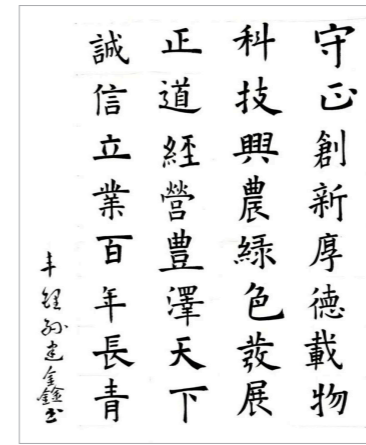 守正創新厚德載物
科技興農綠色發展
正道經營豊澤天下
誠信立業百年長青
孙建鑫书